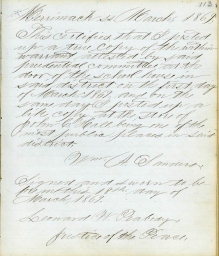 Merrimack ss March 1861
This Certifies that I posted
up a true copy of the within
warrant attested by said
prudential committee at the
door of the school house in
said district on the first day
of March and on the
same day I posted up a
like copy at the store of
one of the
most public places in said
district.
Wm A Sanders
Signed and sworn to be
fore me this day of
March 1861.
Leonard W
Justice of the Peace.